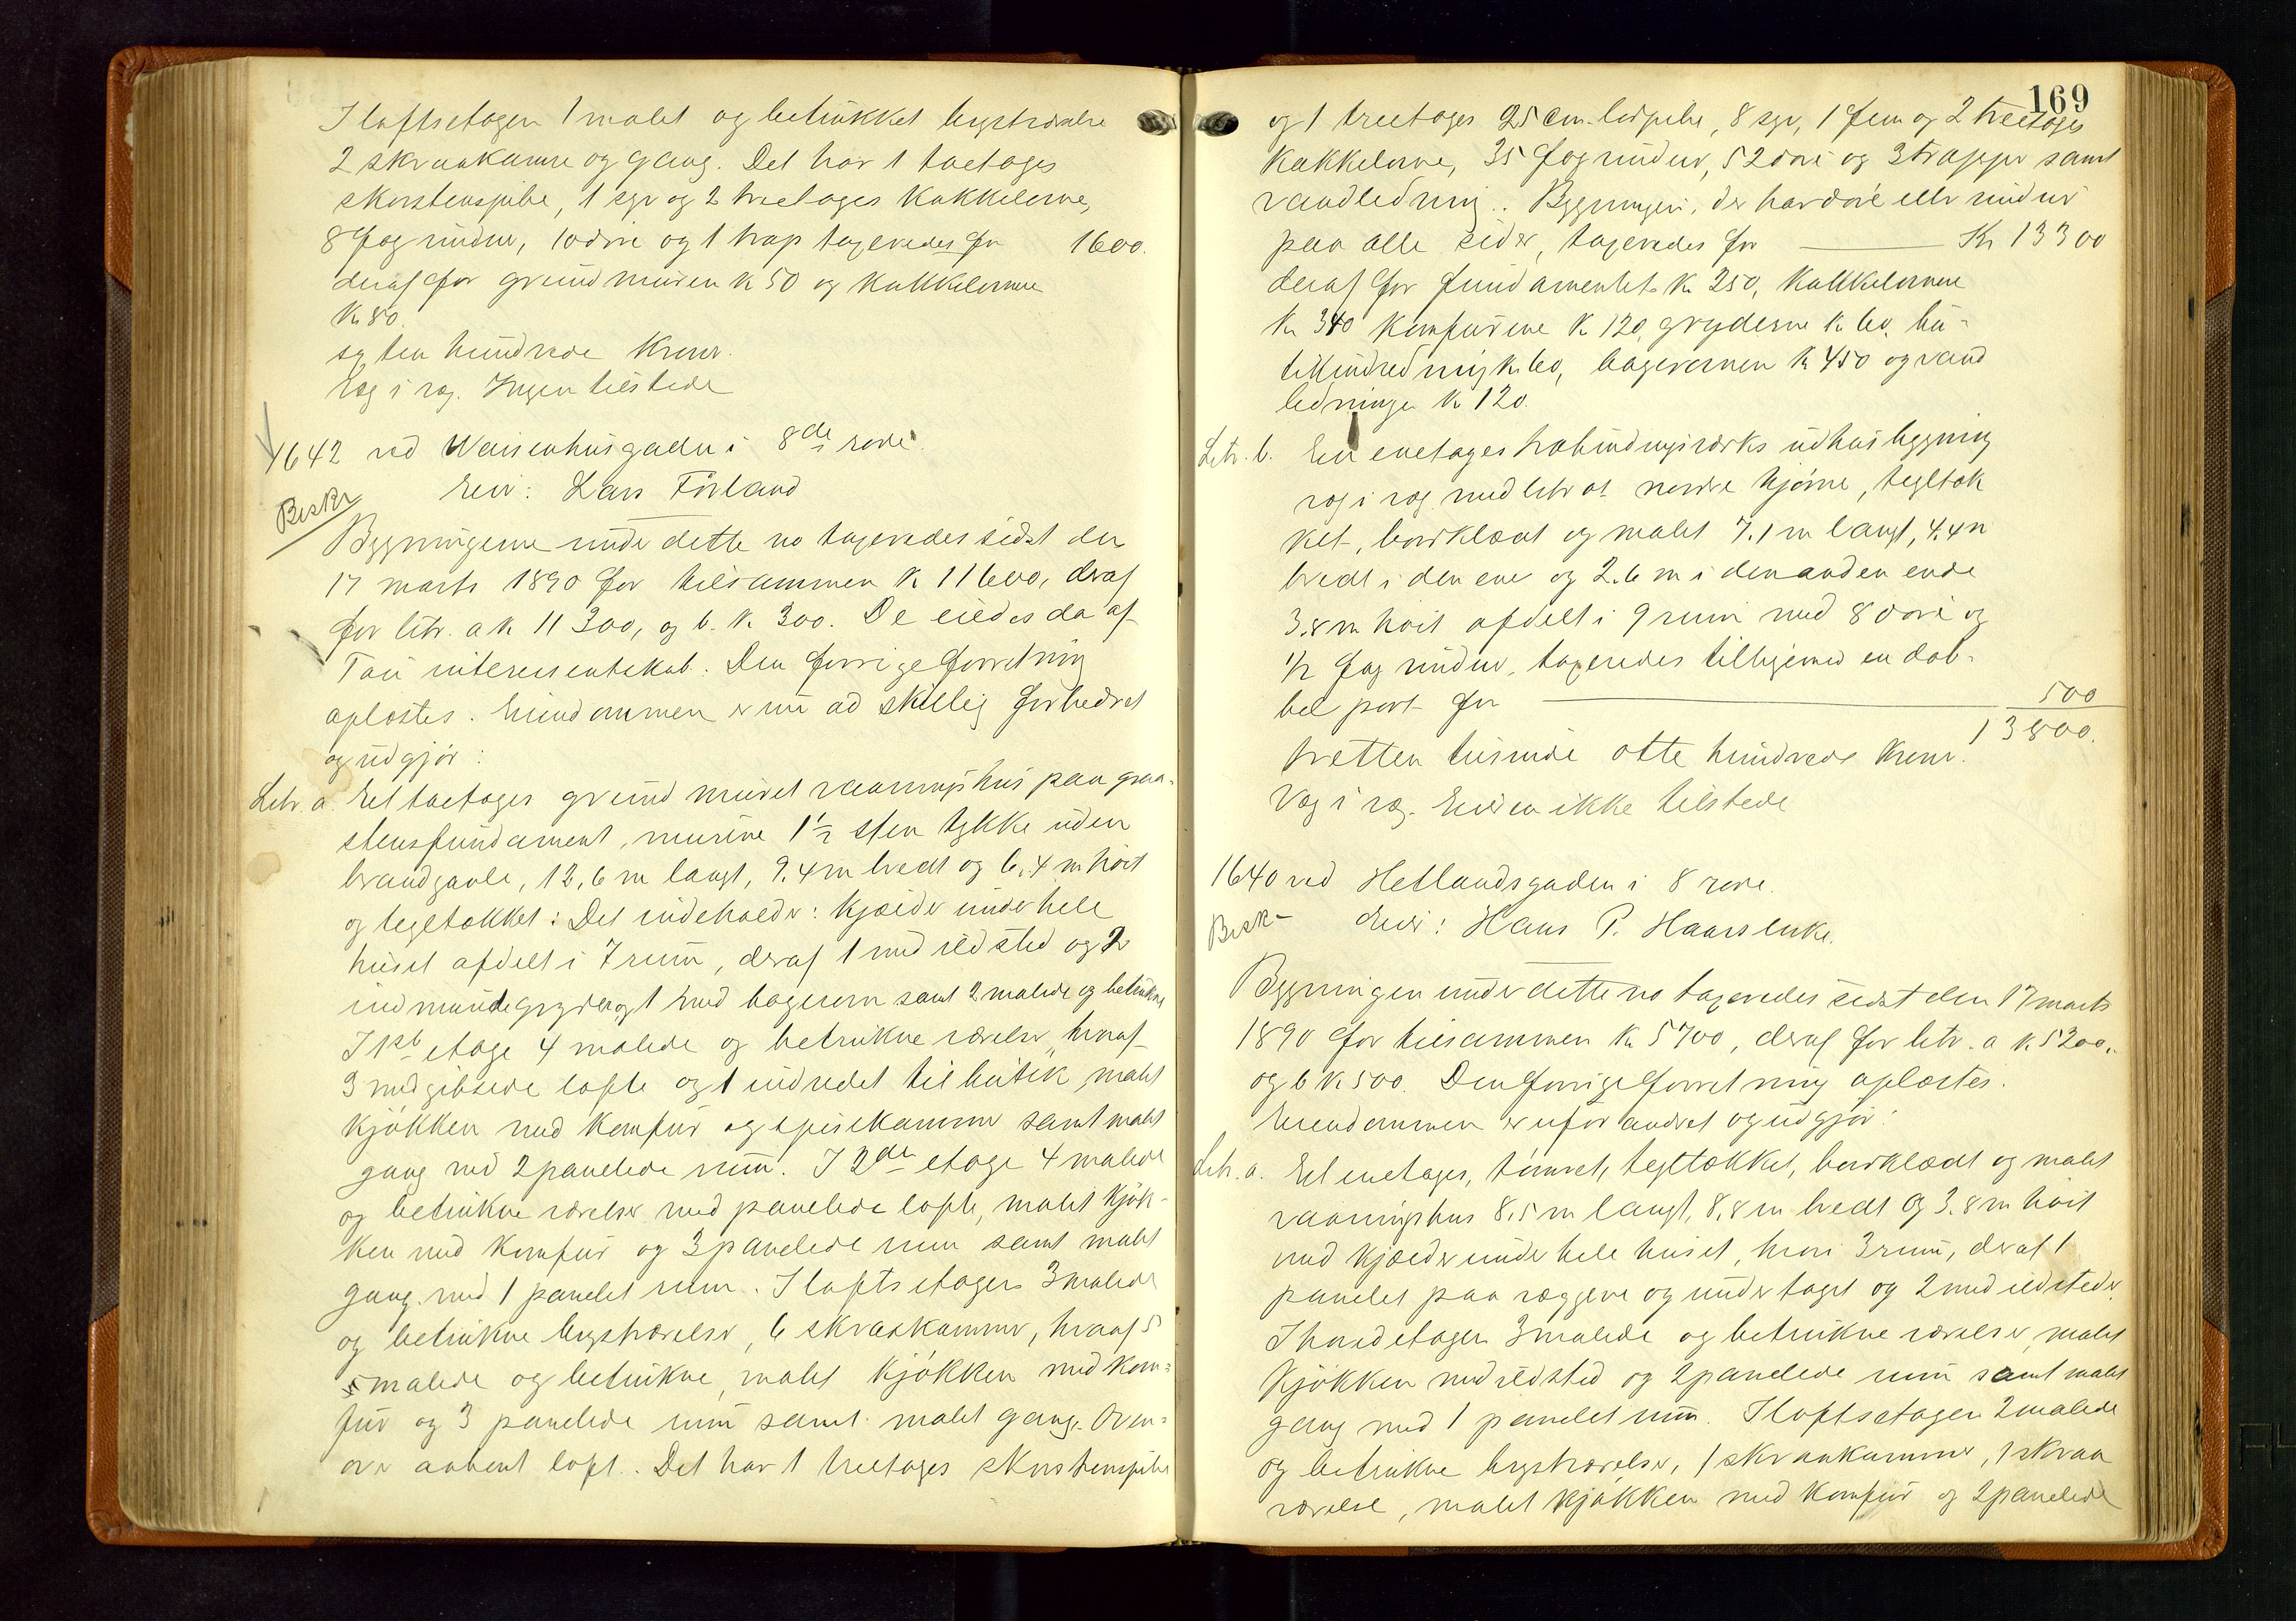 I loftsetagen 1 malet og betrukket brystværelse
2 skraakamre og gang. Det har 1 toetages
skorstenspibe, 1 sgr og 2 treetages kakkelovne,
8 fag vinduer, 10 døre og 1 trap taxeredes for 1600.
deraf for grundmuren k 50 og kakkelovnene
Kr 80.
sexten hundrede kroner.
Væg i væg. Ingen tilstede
1642 ved Waisenhusgaden i 8de rode.
Beskr
Eier: Lars Førland
Bygningerne under dette no taxeredes sidst den
17 marts 1890 for tilsammen k 11600, deraf
for litr. a k 11300, og b. k. 300. De eiedes da af
Tau interessentskab. Den forrige forretning
oplæstes. Eiendommen er nu adskillig forbedret
og udgjør:
Litr. a. Et toetages grundmuret vaaningshus paa graa-
stensfundament, murene 1 1/2 sten tykke uden
brandgavle, 12,6 m langt, 9.4 m bredt og 6,4 m høit
og tegltækket: Det indeholder: Kjælder under hele
huset afdelt i 7 rum, deraf 1 med ildsted og 2
indmurede gryder og 1 med bagerovn samt 2 malede og betrukne
I 1ste etage 4 malede og betrukne værelser, hvoraf
3 med gibsede lofte og 1 indredet til butik, malet
kjøkken med komfur og spisekammer samt malet
gang med 2 panelede rum. I 2de etage 4 malede
og betrukne værelser med panelede lofte, malet kjøk-
ken med komfur og 3 panelede rum samt malet
gang med 1 panelet rum. I loftsetagen 3 malede
og betrukne brystværelser, 6 skraakammer, hvoraf 5
malede og betrukne, malet kjøkken med kom-
fur og 3 panelede rum samt malet gang. Oven-
over aabent loft. Det har 1 treetages skorstenspibe
169
og 1 treetages 25 cm. ledpibe, 8 sgr, 1 fem og 2 treetages
kakkelovne, 35 fag vinduer, 52 døre og 3 trapper samt
vandledning. Bygningen, der har døre eller vinduer
paa alle sider, taxeredes for Kr 13300
deraf for fundamentet k 250, kakkelovnene
kr 340 komfurene k 120, gryderne k 60, bu-
tikindredning k 60, bagerovnen k 450 og vand
ledningen k 120.
Litr. b. En enetages træbindingsværks udhusbygning
væg i væg med litr a's nordre hjørne, tegltæk
ket, bordklædt og malet 7.1 m langt, 4.4 m
bredt i den ene og 2.6 m i den anden ende
3.8 m høit afdelt i 9 rum med 8 døre og
1/2 fag vinduer, taxeredes tilligemed en dob-
bel port for 500
13800.
tretten tusinde otte hundrede kroner.
Væg i væg. Eieren ikke tilstede
1640 ved Hetlandsgaden i 8 rode.
Beskr
Eier: Hans P. Haarsluke.
Bygningen under dette no taxeredes sidst den 17 marts
1890 for tilsammen k 5700, deraf for litr. a k 5200,
og b k 500. Den forrige forretning oplæstes.
Eiendommen er uforandret og udgjør:
Litr. a. Et enetages, tømret, tegltækket, bordklædt og malet
vaaningshus 8,5 m langt, 8,8 m bredt og 3.8 m høit
med kjælder under hele huset, hvori 3 rum, deraf 1
panelet paa væggene og under taget og 2 med ildsteder.
I hovedetagen 3 malede og betrukne værelser, malet
kjøkken med ildsted og 2 panelede rum samt malet
gang med 1 panelet rum. I loftsetagen 2 malede
og betrukne brystværelser, 1 skraakammer, 1 skraa
værelse, malet kjøkken med komfur og 2 panelede